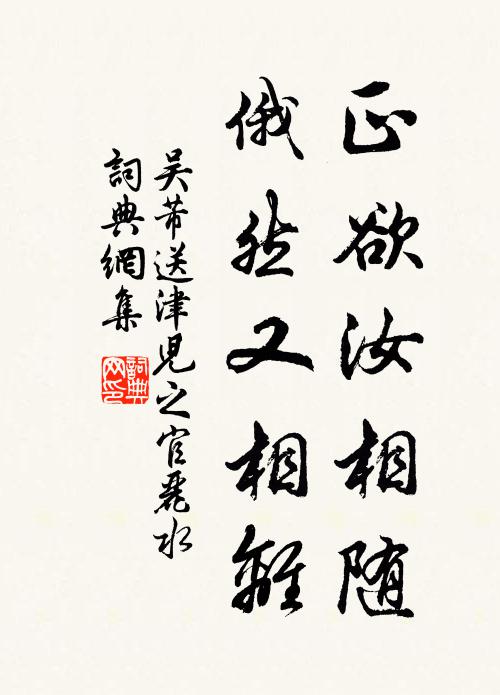 正欲汝相随
俄然又相離
吴芾送津兒之官麗水
詞典網集
詞典
网印